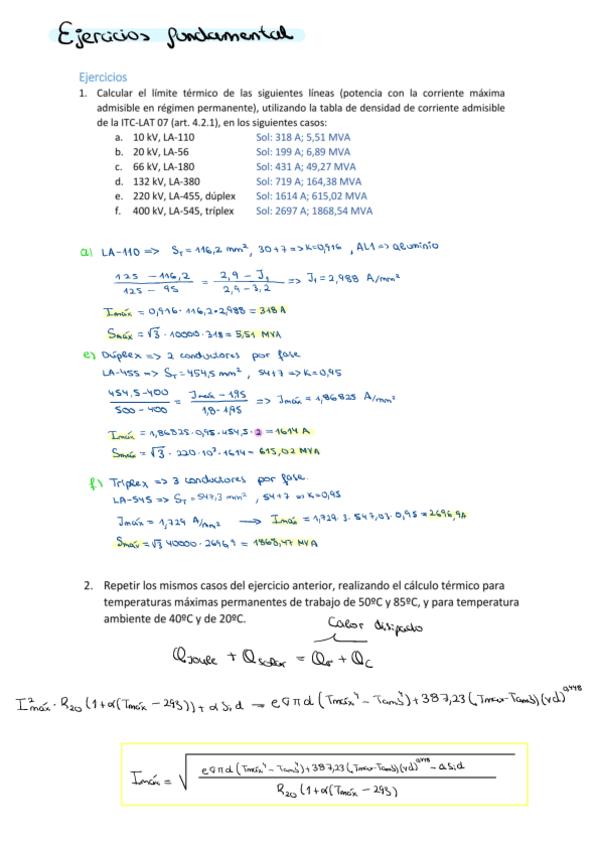 Ejercicios fundamental
Ejercicios
1. Calcular el límite térmico de las siguientes líneas (potencia con la corriente máxima
admisible en régimen permanente), utilizando la tabla de densidad de corriente admisible
de la ITC-LAT 07 (art. 4.2.1), en los siguientes casos:
a. 10 kV, LA-110 Sol: 318 A; 5,51 MVA
b. 20 kV, LA-56 Sol: 199 A; 6,89 MVA
c. 66 kV, LA-180 Sol: 431 A; 49,27 MVA
d. 132 kV, LA-380 Sol: 719 A; 164,38 MVA
e. 220 kV, LA-455, dúplex Sol: 1614 A; 615,02 MVA
f. 400 kV, LA-545, tríplex Sol: 2697 A; 1868,54 MVA
a) LA-110 => S_T = 116,2 mm², 30+7 => K=0,916, AL1 => aluminio
(125 - 116,2)/(125 - 95) = (2,9 - J₁)/(2,9 - 3,2) => J₁ = 2,988 A/mm²
Imáx = 0,916 · 116,2 · 2,988 = 318 A
Smáx = √3 · 10000 · 318 = 5,51 MVA
e) Dúplex => 2 conductores por fase
LA-455 => S_T = 454,5 mm², 54+7 => K=0,95
(454,5 - 400)/(500 - 400) = (Jmáx - 1,95)/(1,8 - 1,95) => Jmáx = 1,86825 A/mm²
Imáx = 1,86825 · 0,95 · 454,5 · 2 = 1614 A
Smáx = √3 · 220 · 10³ · 1614 = 615,02 MVA
f) Triplex => 3 conductores por fase.
LA-545 => S_T = 547,3 mm², 54+7 => K=0,95
Jmáx = 1,729 A/mm² → Imáx = 1,729 · 3 · 547,03 · 0,95 = 2696,9A
Smáx = √3 40000 · 2696,9 = 1868,47 MVA
2. Repetir los mismos casos del ejercicio anterior, realizando el cálculo térmico para
temperaturas máximas permanentes de trabajo de 50ºC y 85ºC, y para temperatura
ambiente de 40ºC y de 20ºC.
Calor disipado
Q_Joule + Q_solar = Q_r + Q_c
I²máx · R₂₀ (1+α(Tmáx - 293)) + α Sᵢ d = eσπd (Tmáx⁴ - Tamb⁴) + 387,23 (Tmax-Tamb)(vd)^0,448
Imáx = √((eσπd (Tmáx⁴ - Tamb⁴) + 387,23 (Tmax-Tamb)(vd)^0,448 - αSᵢd)/(R₂₀ (1+α(Tmáx - 293)))